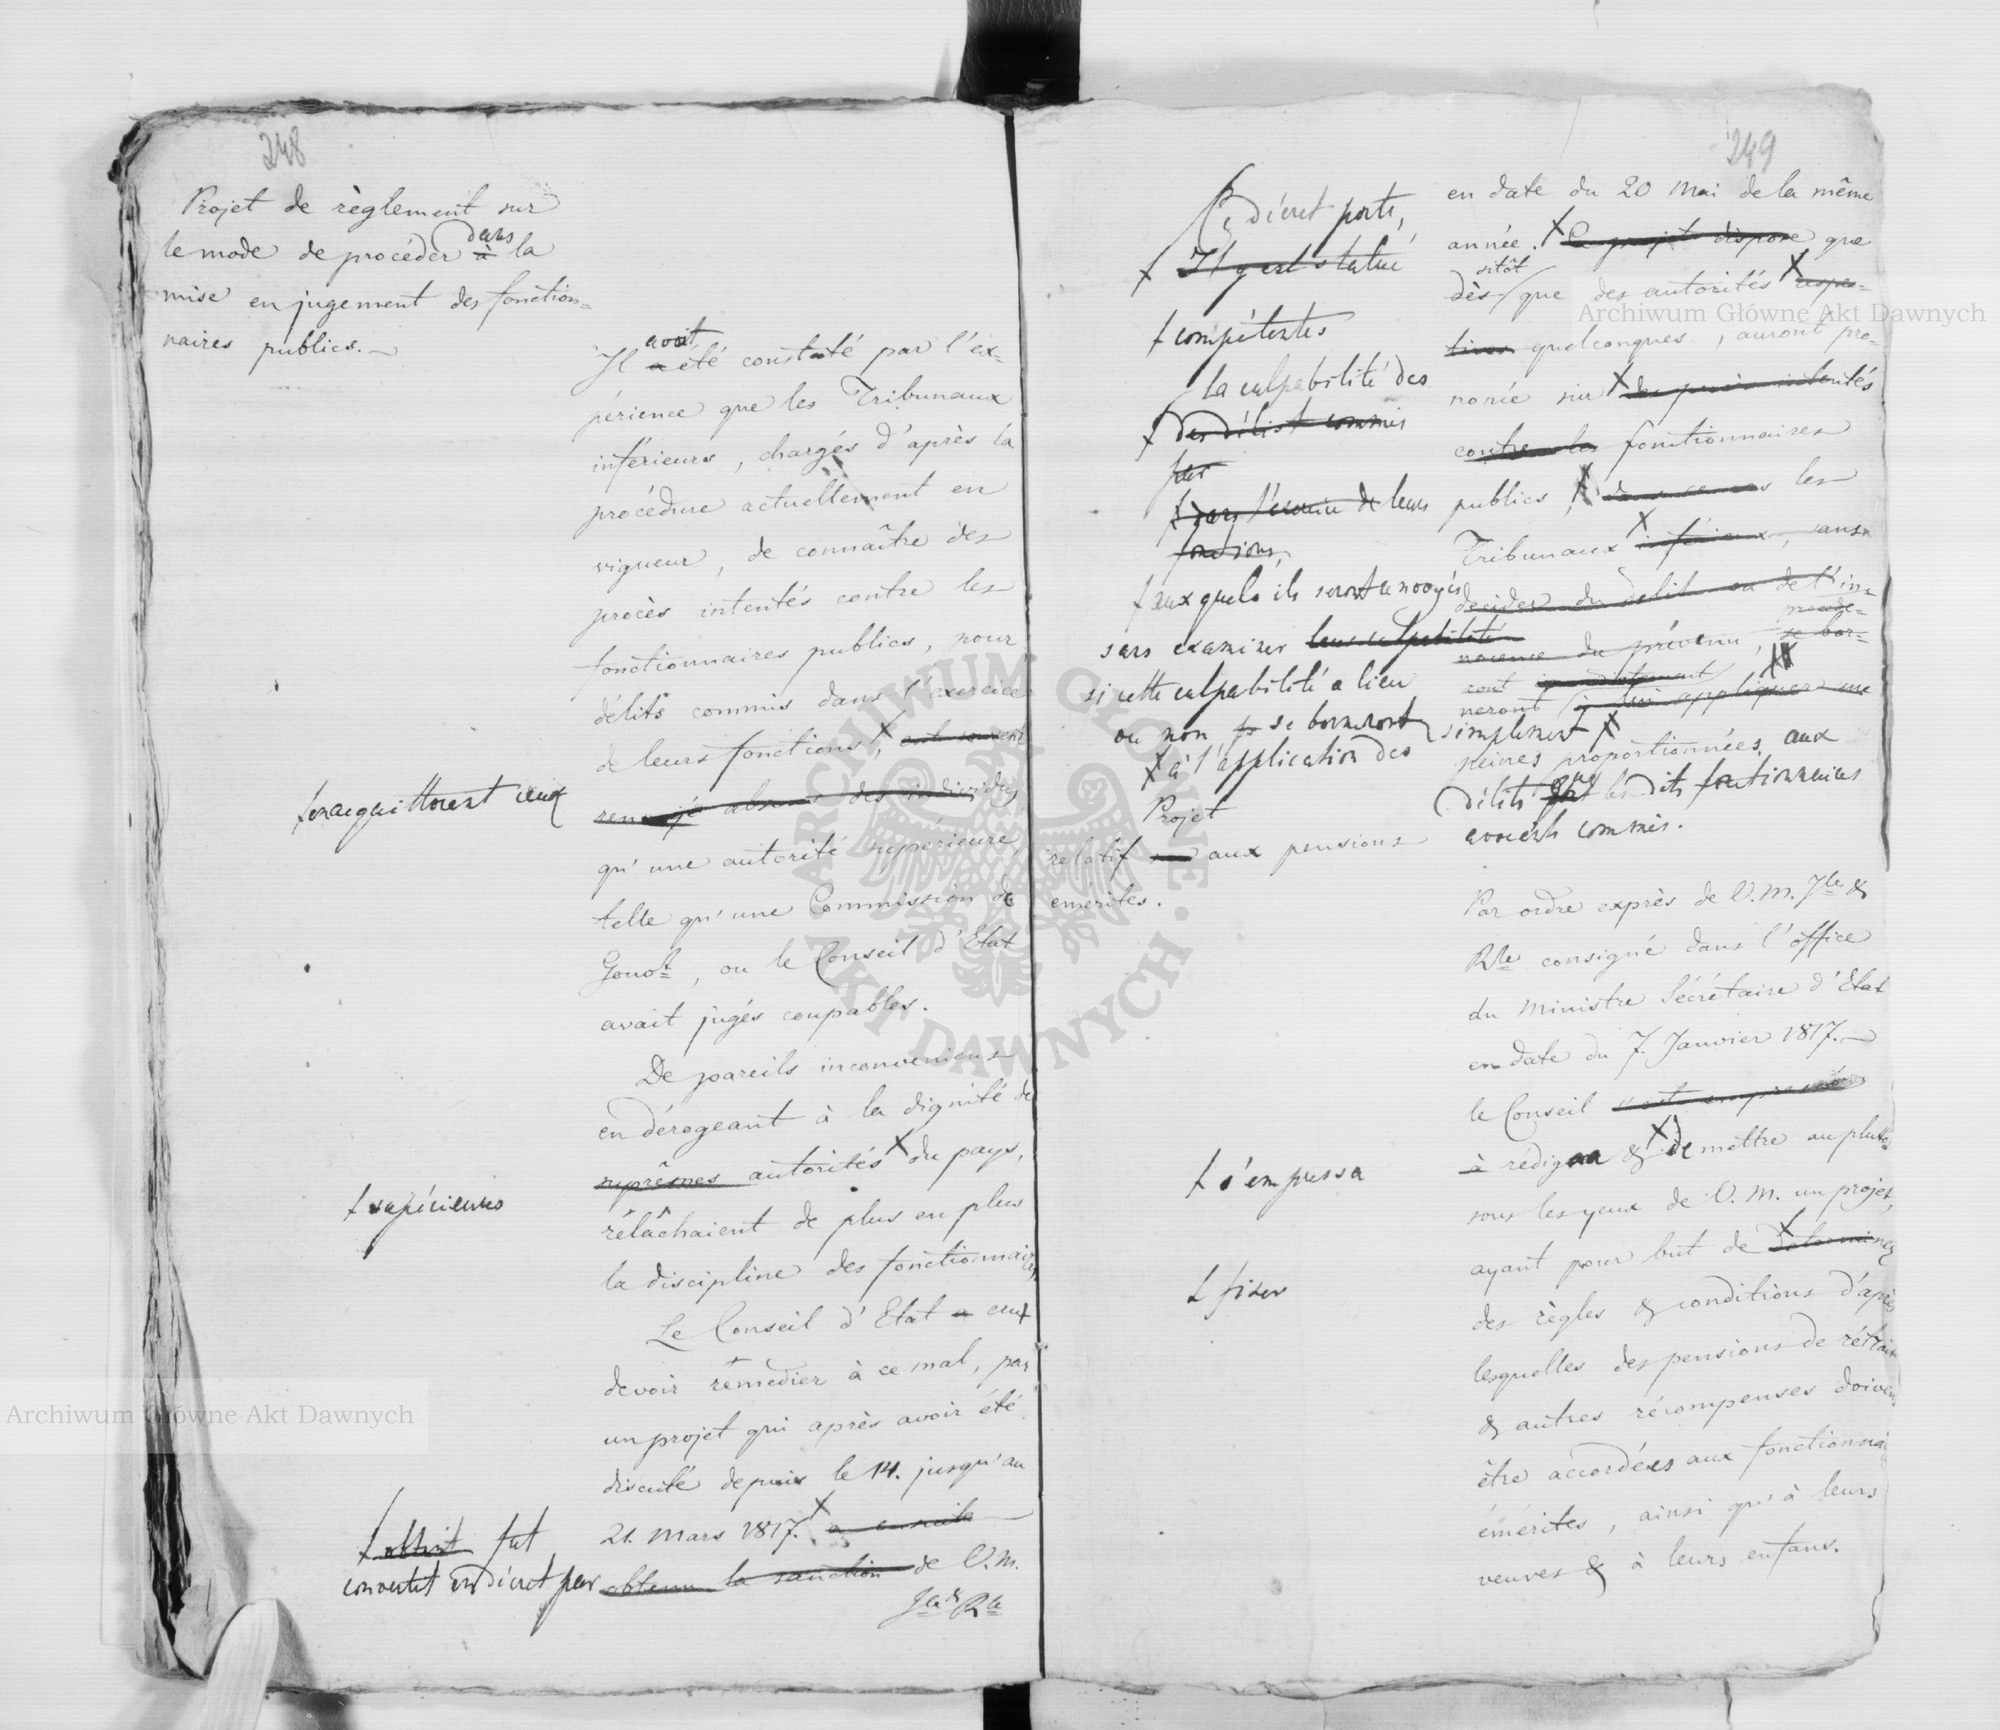 248
Projet de règlement sur
dans
le mode de procéder à la
mise en jugement des fonction=
naires publics.
avoit
Il a été constaté par l'ex=
périence que les Tribunaux
inférieurs, chargés d'après la
procédure actuellement en
vigueur, de connaître des
procès intentés contre les
fonctionnaires publics, pour
délits commis dans l'exercice
de leurs fonctions,
en acquittoient ceux
renvoyé absous des individus
qu'une autorité supérieure
telle qu'une Commission de
Gouvt, ou le Conseil d'Etat
avait jugés coupables.
De pareils inconveniens
en dérogeant à la dignité de
suprêmes autorités du pays,
supérieures
relâchaient de plus en plus
la discipline des fonctionnaires
Le Conseil d'Etat a crut
devoir remedier à ce mal, par
un projet qui après avoir été
discuté depuis le 14. jusqu'au
21. Mars 1817. a ensuite
obtint fut
convertit en décret par
obtenu la sanction de V. M.
Jle & Rle
249
Ce décret porte,
Il y est statué
compétentes
la culpabilité des
des délits commis
par
dans l'exercice de leurs
fonctions,
auxquels ils seront renvoyés
sans examiner leur culpabilité
si cette culpabilité a lieu
ou non se borneront
à l'application des
Projet
relatif aux pensions
emérites.
s'empressa
fixer
en date du 20 Mai de la même
année. Ce projet dispose que
sitôt
dès que des autorités respec=
tives quelconques, auront pro=
noncé sur des procès intentés
contre les fonctionnaires
publics, les
Tribunaux inférieurs, sans
decider du délit ou de l'in=
nocence du prévenu, se bor=
neront
simplement
peines proportionnées aux
délits que les dits fonctionnaires
avoient commis.
Par ordre exprès de V. M. Jle &
Rle consigné dans l'office
du Ministre Sécrétaire d'Etat
en date du 7. Janvier 1817.
le Conseil s'est empressé
à rediger & de mettre au plutôt
sous les yeux de V. M. un projet,
ayant pour but de déterminer
des règles & conditions d'après
lesquelles des pensions de rétraite
& autres récompenses doivent
être accordées aux fonctionnaires
émérites, ainsi qu'à leurs
veuves & à leurs enfans.
Archiwum Główne Akt Dawnych
Archiwum Główne Akt Dawnych
ARCHIWUM GŁÓWNE
AKT DAWNYCH